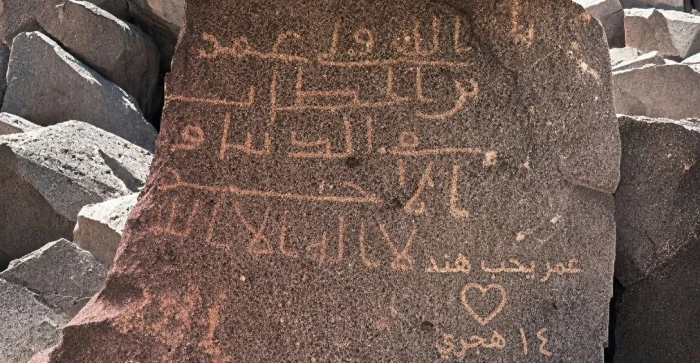 الله ولي عمر
بن الخطاب
الدنيا و
لا اله الا الله
عمر يحب هند
١٤ هجري